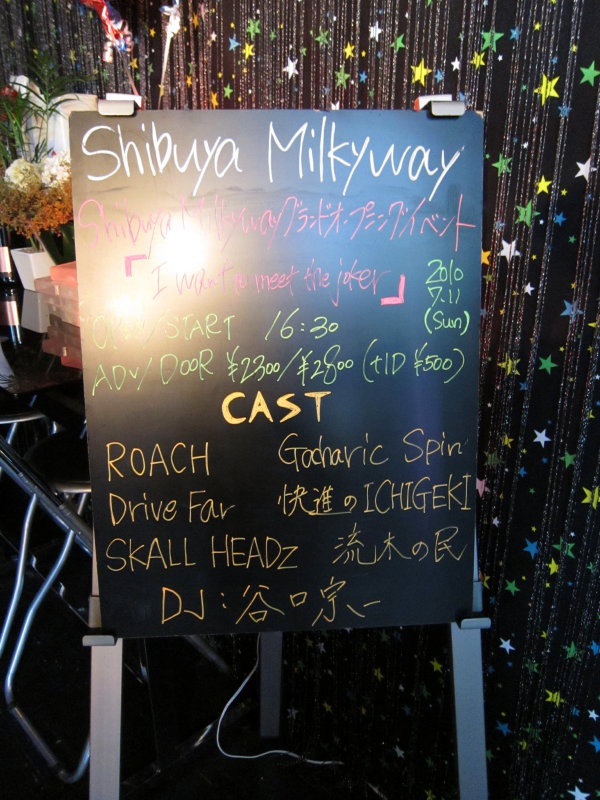 Shibuya Milkyway
Shibuya Milkywayグランドオープニングイベント
「I want to meet the joker」
2010
7.11
(Sun)
OPEN/START 16:30
ADV/DOOR ¥2300/¥2800 (+1D ¥500)
CAST
ROACH Gacharic Spin
Drive Far 快進のICHIGEKI
SKALL HEADZ 流木の民
DJ:谷口宗一